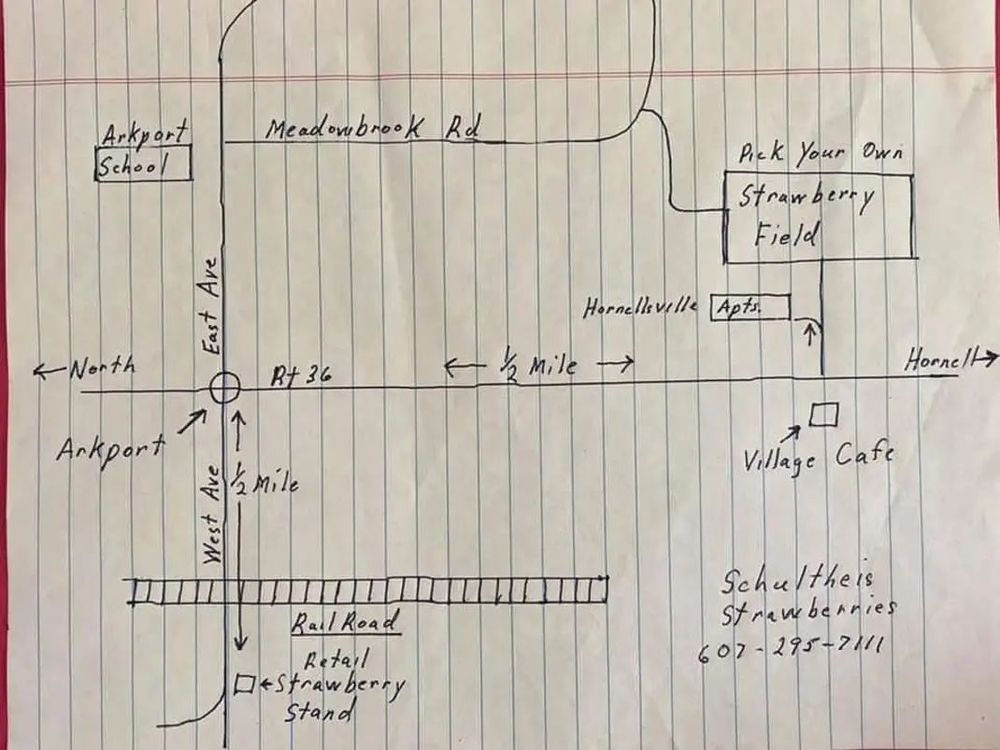 Arkport
School
Meadowbrook Rd
Pick Your Own
Strawberry
Field
East Ave
Hornellsville Apts.
←North
Rt 36
← 1/2 Mile →
Hornell→
Arkport
Village Cafe
West Ave
1/2 Mile
Rail Road
Retail
←Strawberry
Stand
Schultheis
Strawberries
607-295-7111